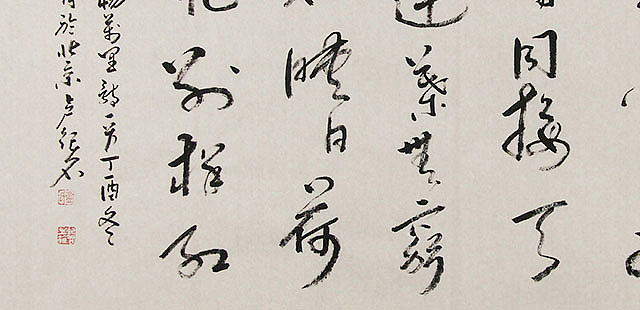 同接天
蓮葉無窮
映日荷
花别樣紅
楊萬里詩一首丁酉冬
月於北京